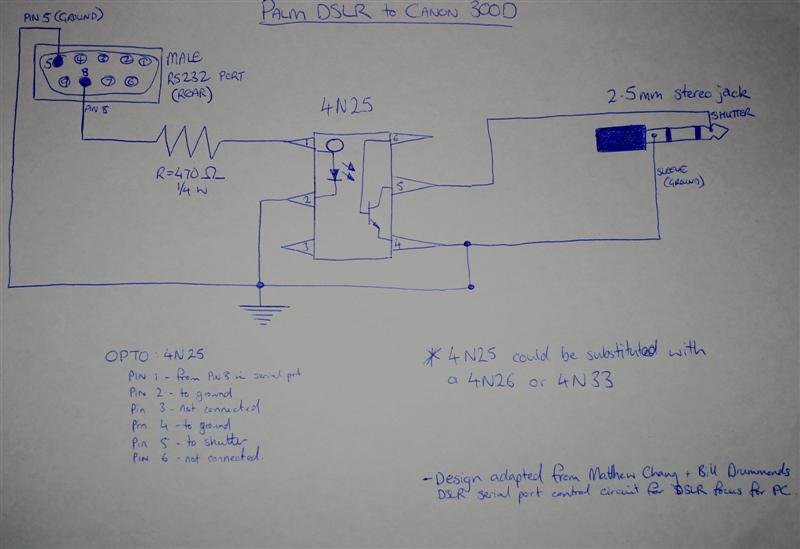 PALM DSLR to CANON 300D
PIN 5 (GROUND)
5 4 3 2 1
9 8 7 6
MALE
RS232 PORT
(REAR)
PIN 8
R=470Ω
1/4 W
4N25
1
2
3
6
5
4
2.5mm stereo jack
SHUTTER
SLEEVE
(GROUND)
OPTO: 4N25
PIN 1 - from PIN 8 in serial port
PIN 2 - to ground
Pin 3 - not connected
Pin 4 - to ground
Pin 5 - to shutter
PIN 6 - not connected.
* 4N25 could be substituted with
a 4N26 or 4N33
- Design adapted from Matthew Chang + Bill Drummonds
DSLR serial port control circuit for DSLR focus for PC.